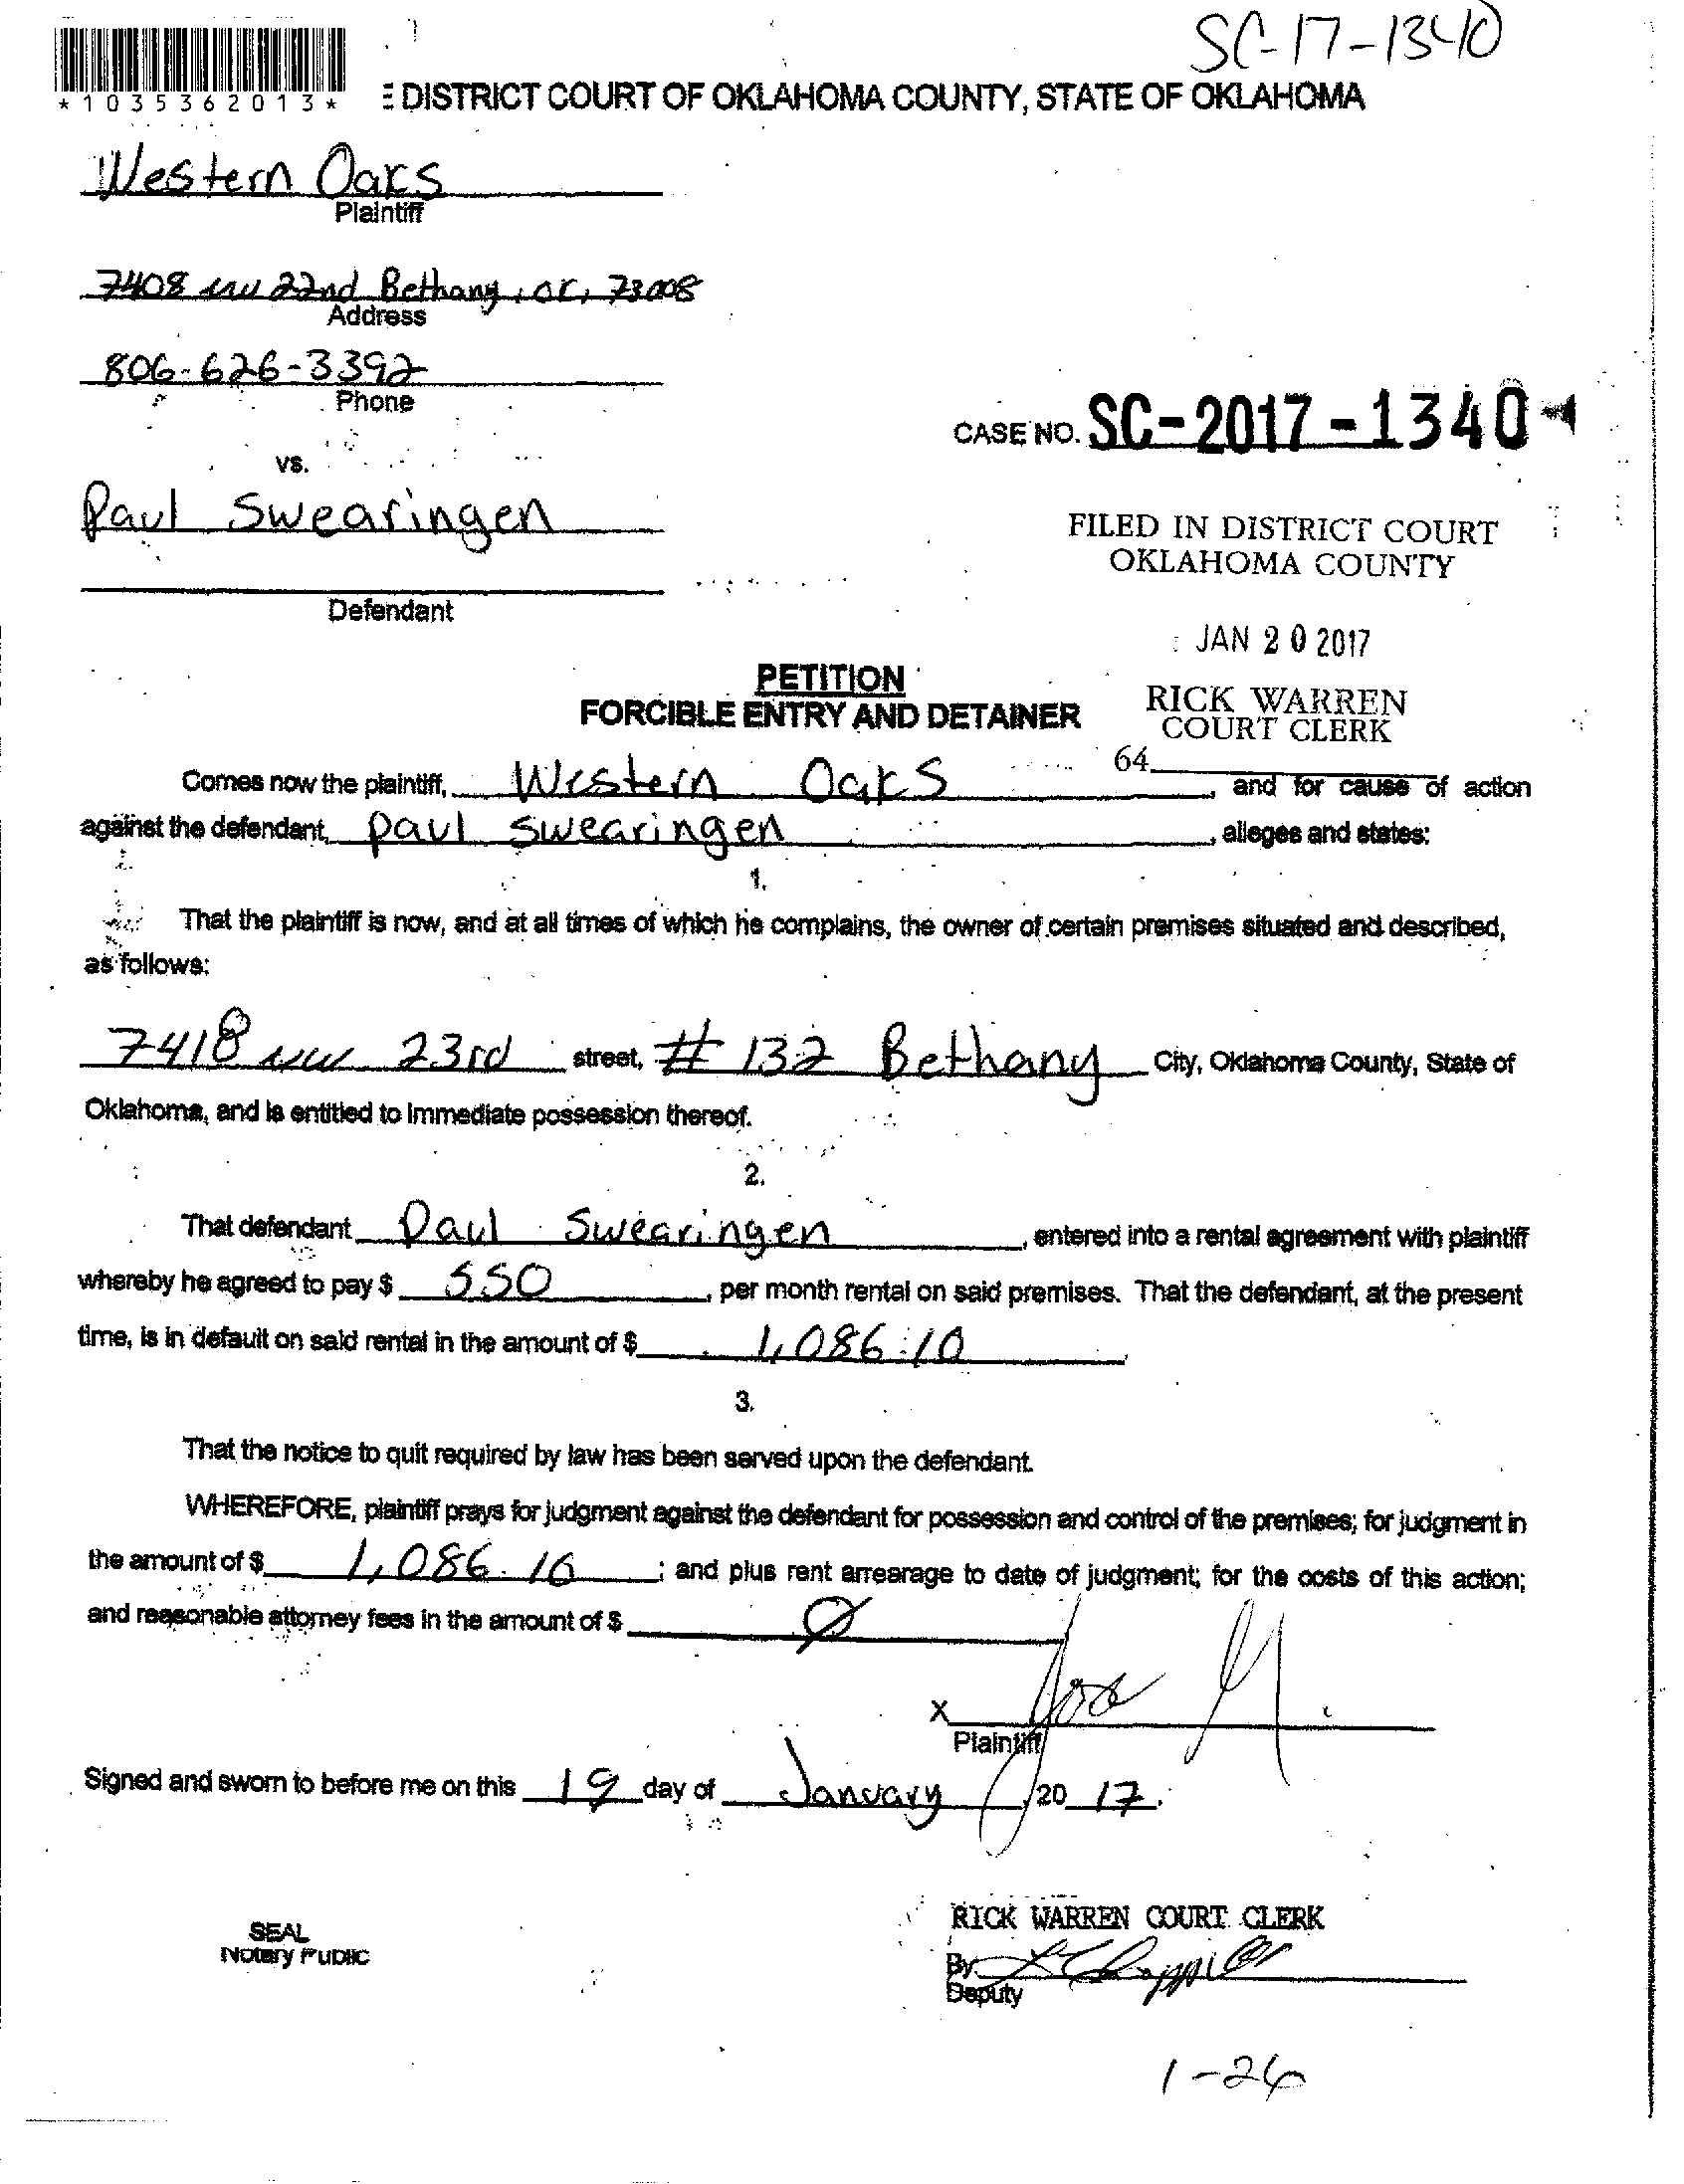 SC-17-1340
*1035362013*
E DISTRICT COURT OF OKLAHOMA COUNTY, STATE OF OKLAHOMA
Western Oaks
Plaintiff
7408 NW 22nd Bethany, OK, 73008
Address
806-626-3392
Phone
CASE NO. SC-2017-1340
vs.
Paul Swearingen
FILED IN DISTRICT COURT
OKLAHOMA COUNTY
Defendant
JAN 20 2017
PETITION
FORCIBLE ENTRY AND DETAINER
RICK WARREN
COURT CLERK
64
Comes now the plaintiff, Western Oaks, and for cause of action
against the defendant, Paul Swearingen, alleges and states:
1.
That the plaintiff is now, and at all times of which he complains, the owner of certain premises situated and described,
as follows:
7418 NW 23rd street, # 132 Bethany City, Oklahoma County, State of
Oklahoma, and is entitled to immediate possession thereof.
2.
That defendant Paul Swearingen, entered into a rental agreement with plaintiff
whereby he agreed to pay $ 550, per month rental on said premises. That the defendant, at the present
time, is in default on said rental in the amount of $ 1,086.10
3.
That the notice to quit required by law has been served upon the defendant.
WHEREFORE, plaintiff prays for judgment against the defendant for possession and control of the premises; for judgment in
the amount of $ 1,086.10; and plus rent arrearage to date of judgment; for the costs of this action;
and reasonable attorney fees in the amount of $ Ø
X
Plaintiff
Signed and sworn to before me on this 19 day of January, 20 17.
RICK WARREN COURT CLERK
SEAL
Notary Public
By
Deputy
1-26